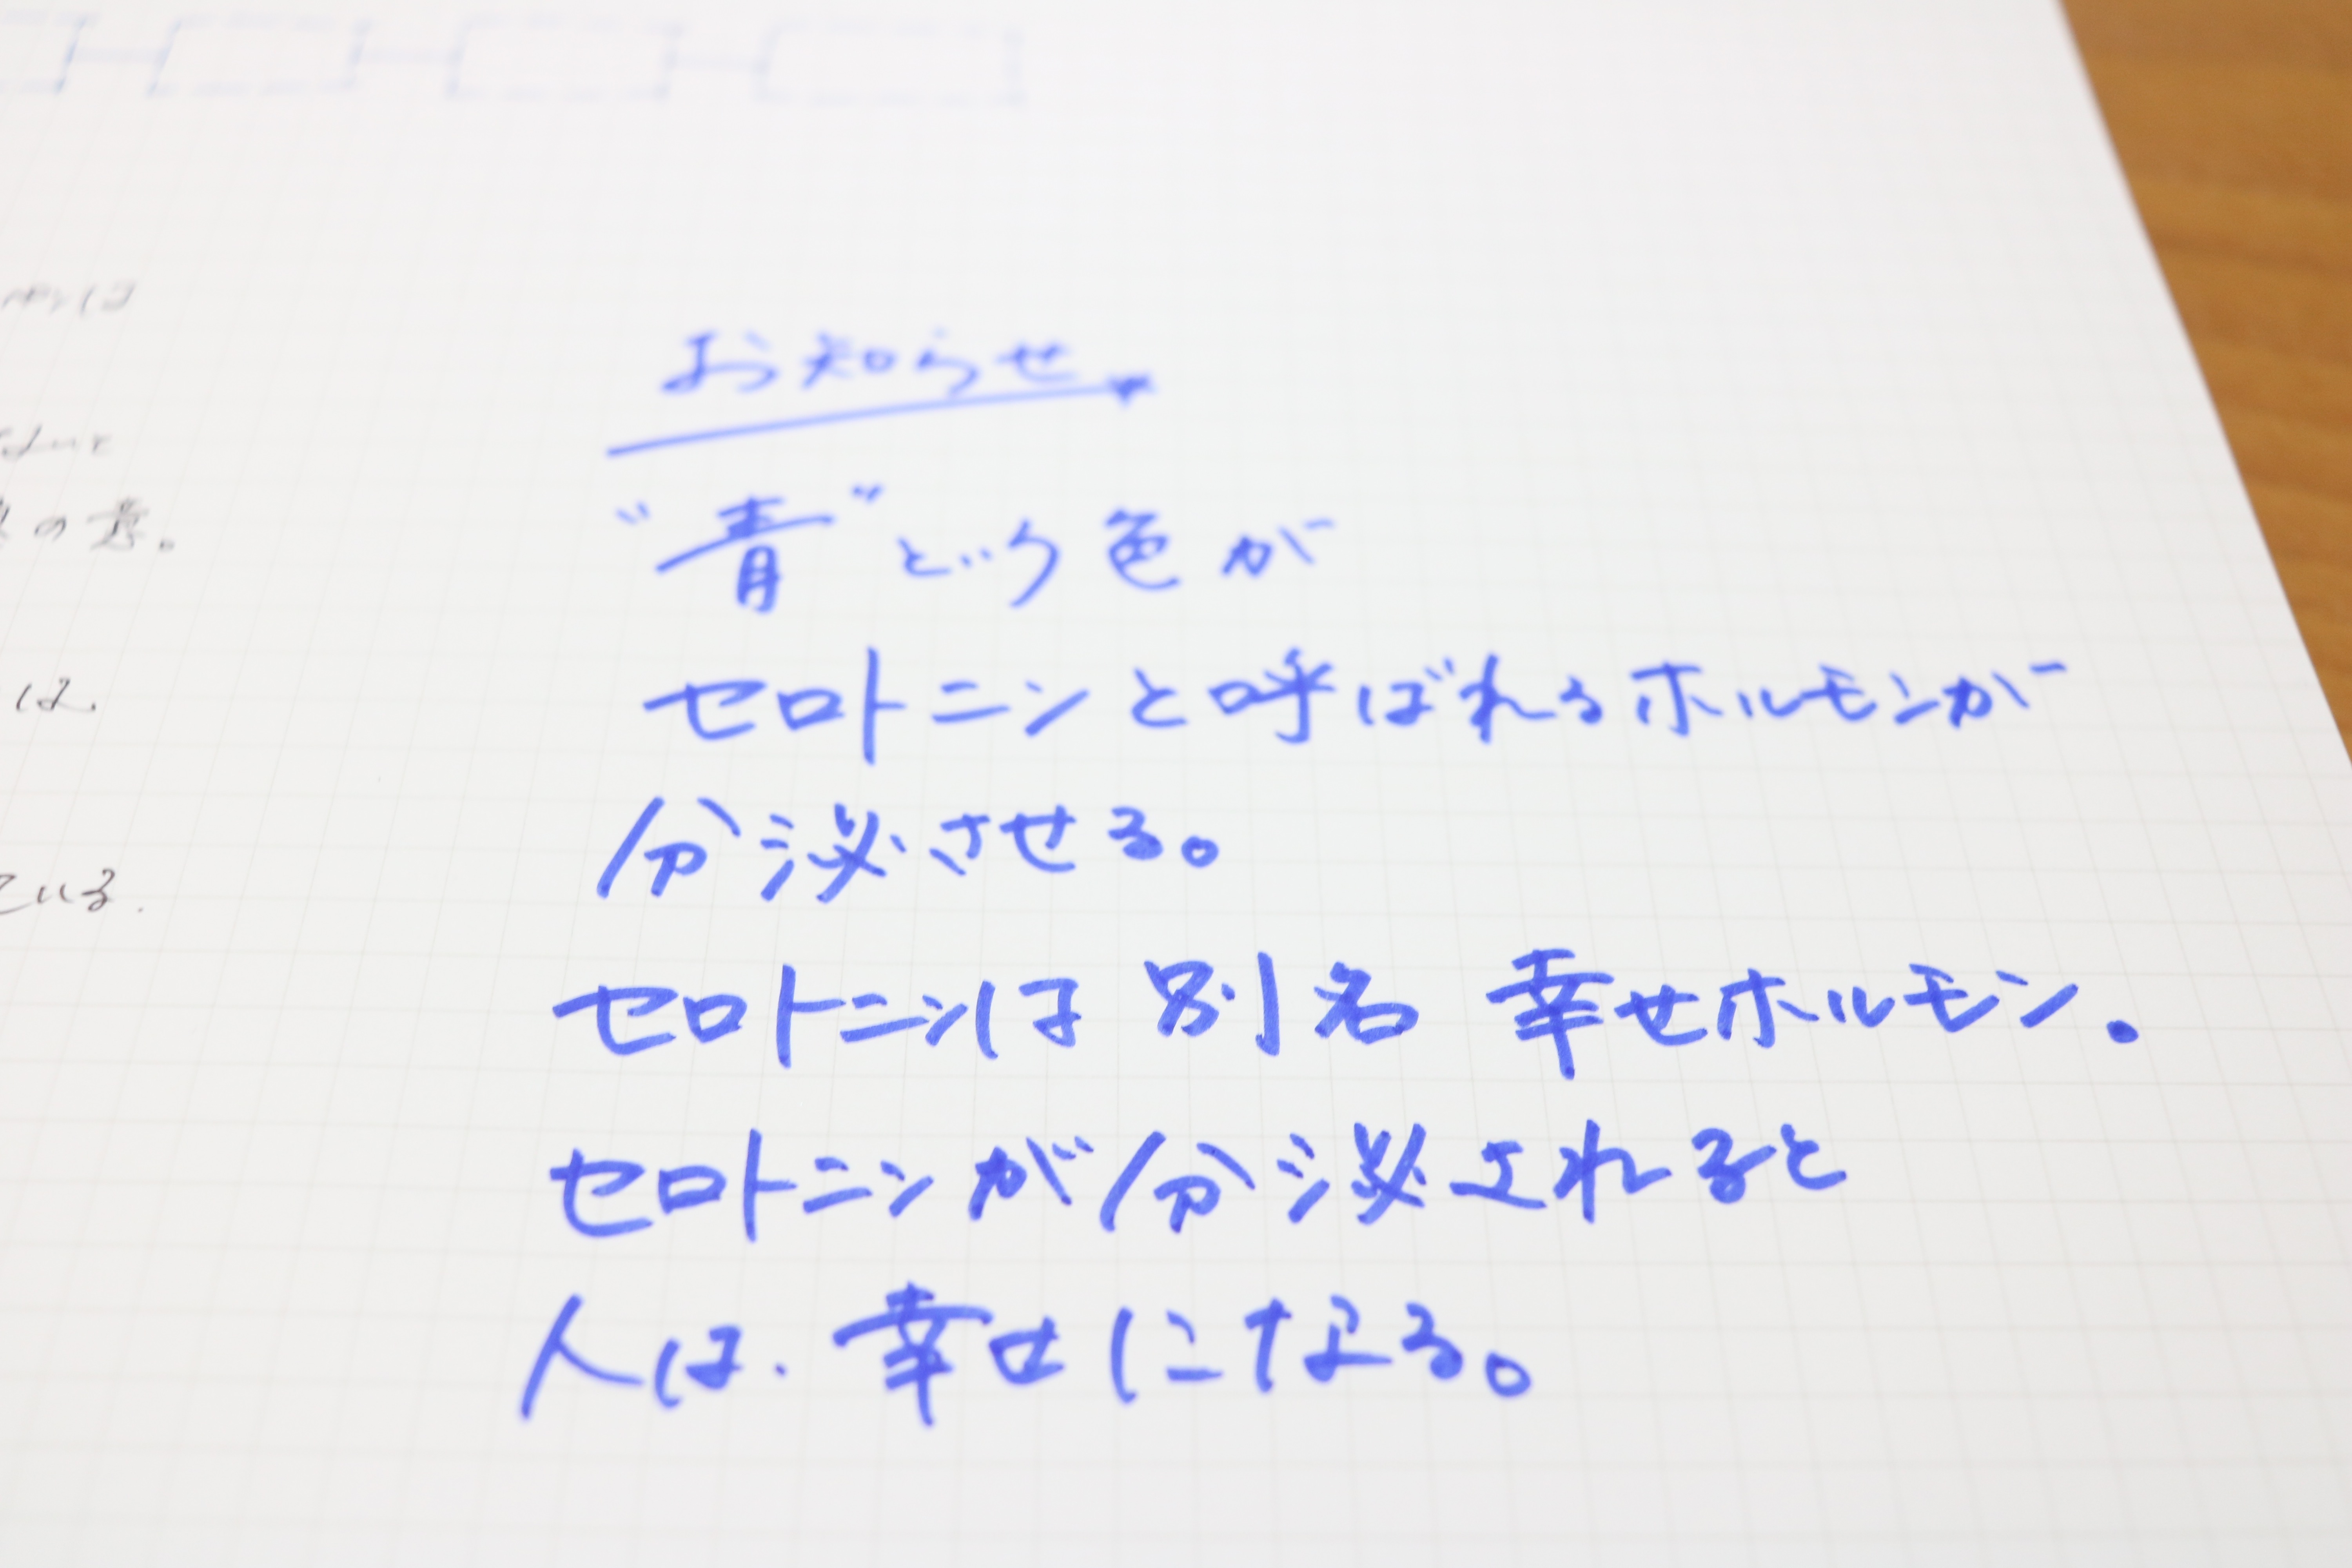 の意。
は、
ている.
お知らせ
"青"という色が
セロトニンと呼ばれるホルモンが
分泌させる。
セロトニンは別名 幸せホルモン.
セロトニンが分泌されると
人は.幸せになる。